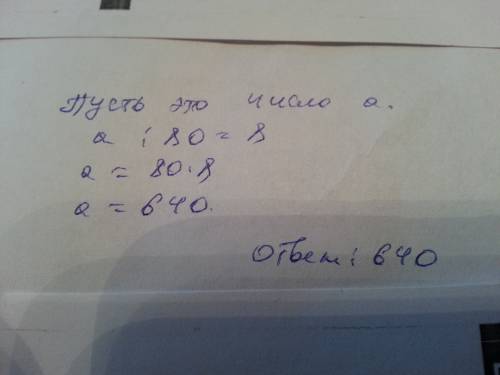 Пусть это число a.
a : 80 = 8
a = 80 · 8
a = 640.
Ответ: 640